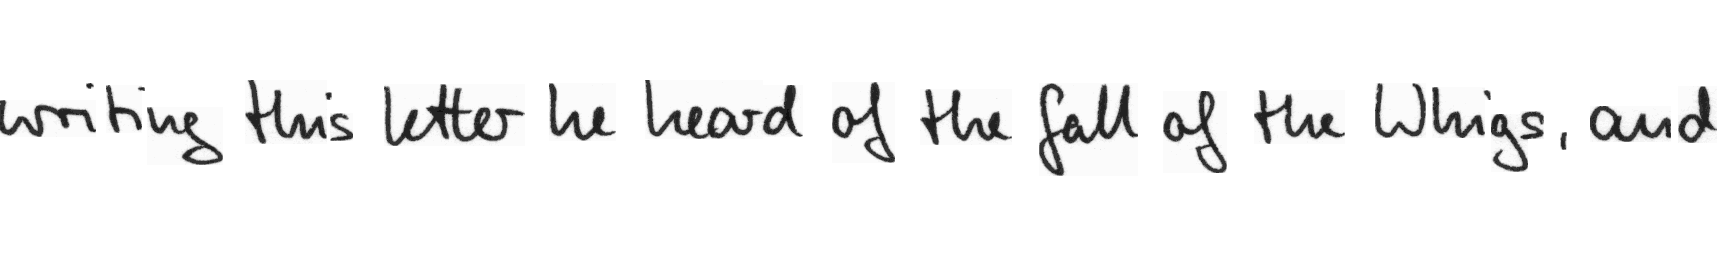 writing this letter he heard of the fall of the Whigs, and